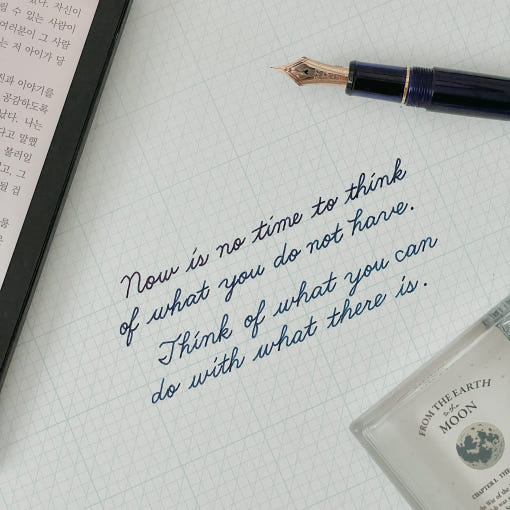 있다. 자신이
릴 수 있는 사람이
여러분이 그 사람
는 저 아이가 당
진과 이야기를
공감하도록
났다. 나는
다고 말했
불러일
고, 그
될 겁
을
Now is no time to think
of what you do not have.
Think of what you can
do with what there is.
FROM THE EARTH
to the
MOON
CHAPTER I. THE